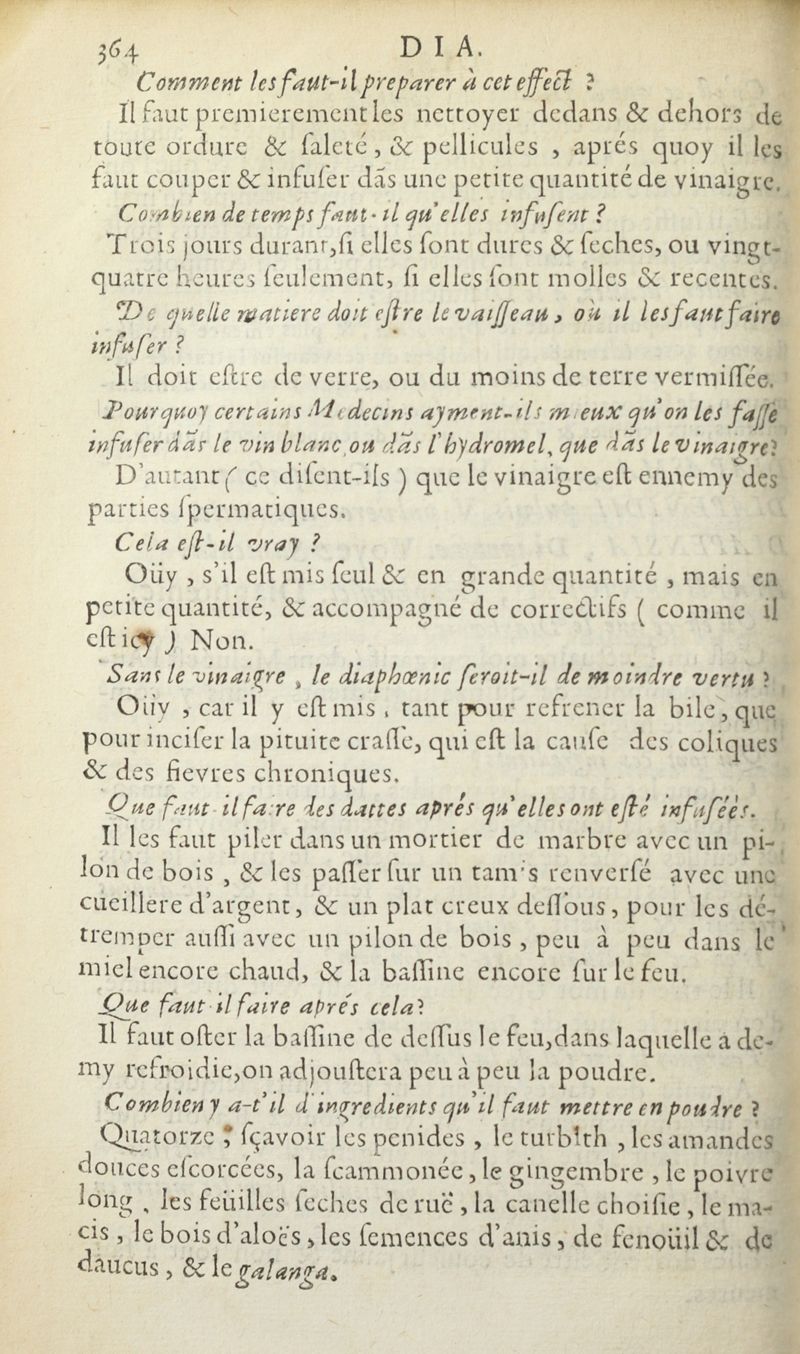 364 DIA.
Comment les faut-il preparer à cet effect ?
Il faut premierement les nettoyer dedans & dehors de
toute ordure & saleté, & pellicules, aprés quoy il les
faut couper & infuser dãs une petite quantité de vinaigre.
Combien de temps faut-il qu'elles infusent ?
Trois jours durant, si elles sont dures & seches, ou vingt-
quatre heures seulement, si elles sont molles & recentes.
De quelle matiere doit estre le vaisseau, où il les faut faire
infuser ?
Il doit estre de verre, ou du moins de terre vermissée.
Pourquoy certains Medecins ayment-ils mieux qu'on les fasse
infuser dãs le vin blanc, ou dãs l'hydromel, que dãs le vinaigre?
D'autant ( ce disent-ils ) que le vinaigre est ennemy des
parties spermatiques.
Cela est-il vray ?
Oüy, s'il est mis seul & en grande quantité, mais en
petite quantité, & accompagné de correctifs ( comme il
est icy ) Non.
Sans le vinaigre, le diaphœnic seroit-il de moindre vertu ?
Oüy, car il y est mis, tant pour refrener la bile, que
pour inciser la pituite crasse, qui est la cause des coliques
& des fievres chroniques.
Que faut-il faire des dattes aprés qu'elles ont esté infusées.
Il les faut piler dans un mortier de marbre avec un pi-
lon de bois, & les passer sur un tamis renversé avec une
cüeillere d'argent, & un plat creux dessous, pour les dé-
tremper aussi avec un pilon de bois, peu à peu dans le
miel encore chaud, & la bassine encore sur le feu.
Que faut il faire aprés cela?
Il faut oster la bassine de dessus le feu, dans laquelle à de-
my refroidie, on adjoustera peu à peu la poudre.
Combien y a-t'il d'ingredients qu'il faut mettre en poudre ?
Quatorze ; sçavoir les penides, le turbith, les amandes
douces escorcées, la scammonée, le gingembre, le poivre
long, les feüilles seches de ruë, la canelle choisie, le ma-
cis, le bois d'aloës, les semences d'anis, de fenoüil & de
daucus, & le galanga.